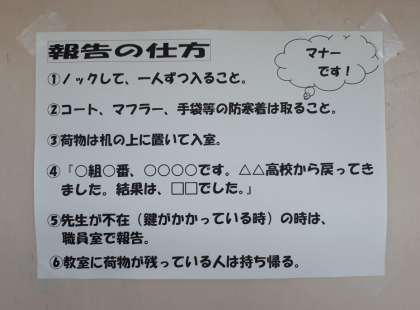 報告の仕方
マナー
です！
①ノックして、一人ずつ入ること。
②コート、マフラー、手袋等の防寒着は取ること。
③荷物は机の上に置いて入室。
④「○組○番、○○○○です。△△高校から戻ってき
ました。結果は、□□でした。」
⑤先生が不在（鍵がかかっている時）の時は、
職員室で報告。
⑥教室に荷物が残っている人は持ち帰る。